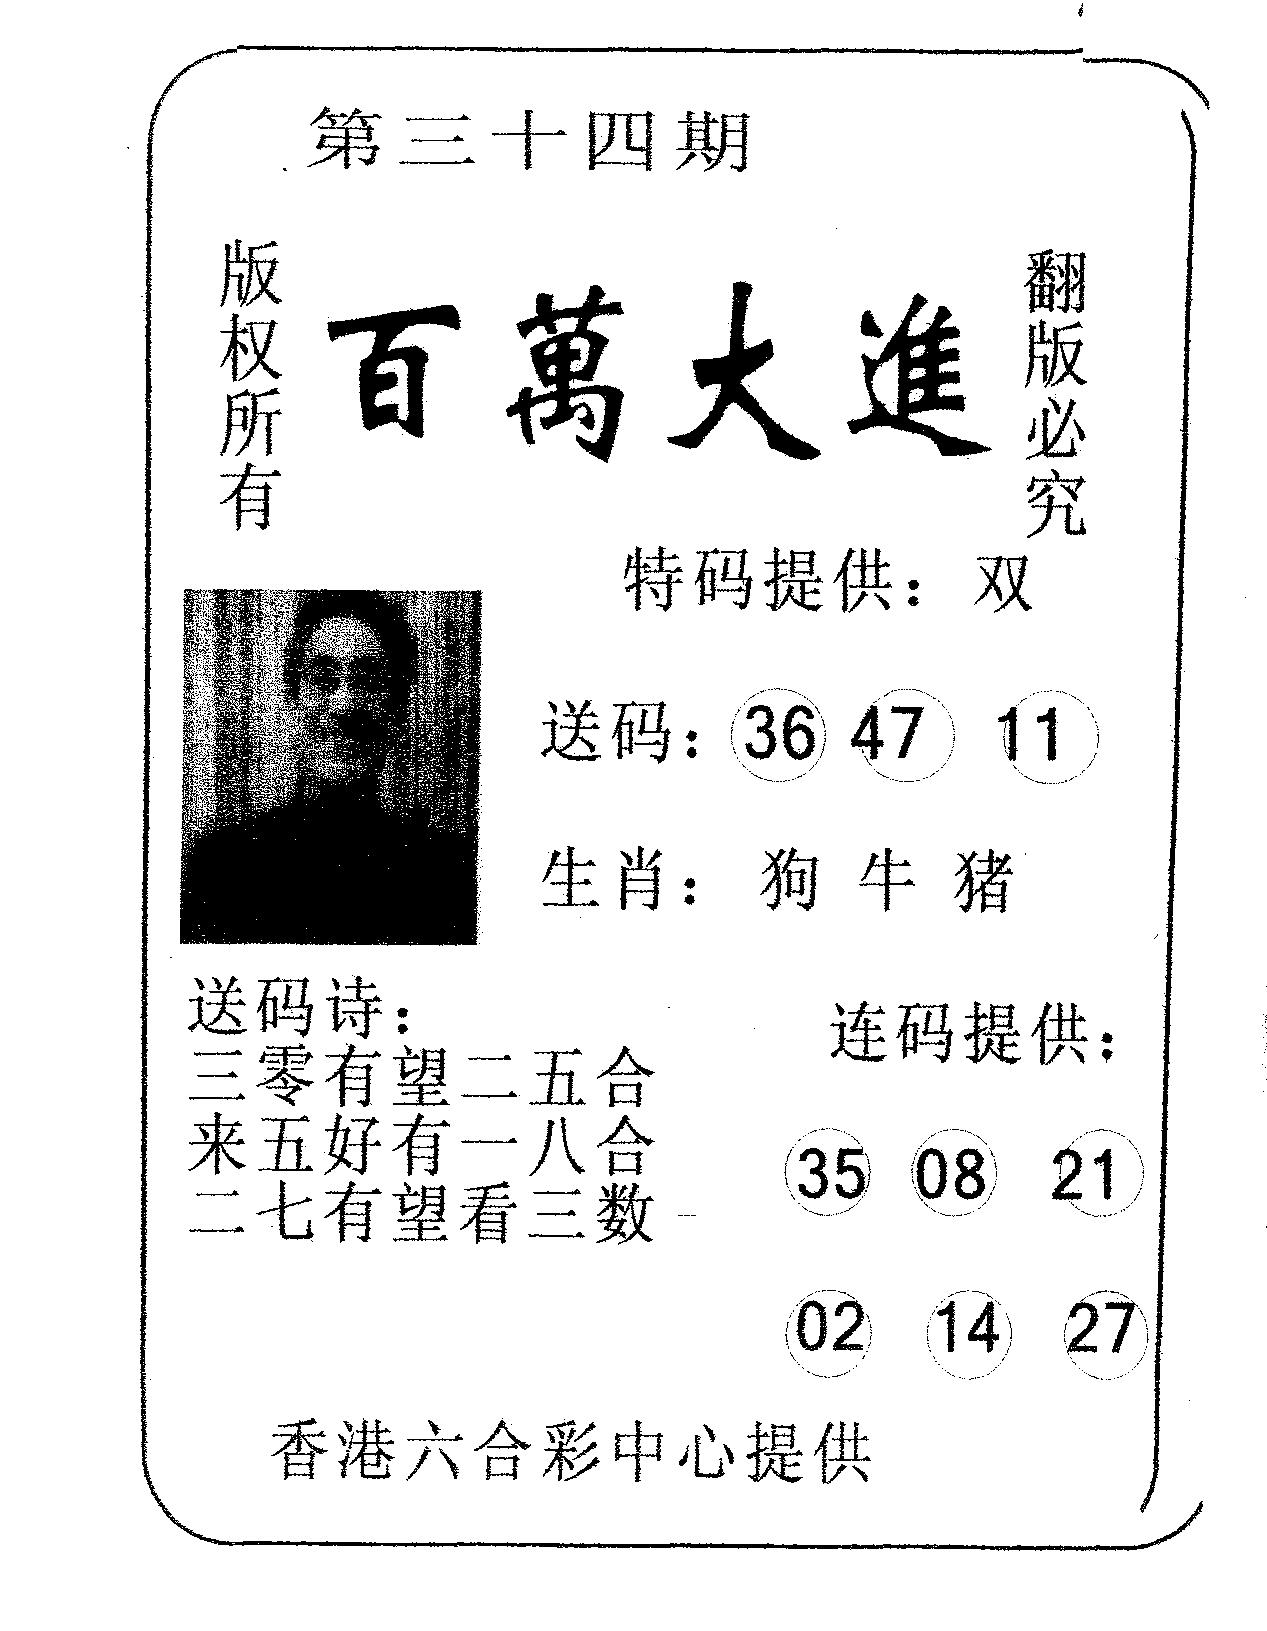 第三十四期
版权所有
百萬大進
翻版必究
特码提供：双
送码：36 47 11
生肖：狗 牛 猪
送码诗：
三零有望二五合
来五好有一八合
二七有望看三数
连码提供：
35 08 21
02 14 27
香港六合彩中心提供